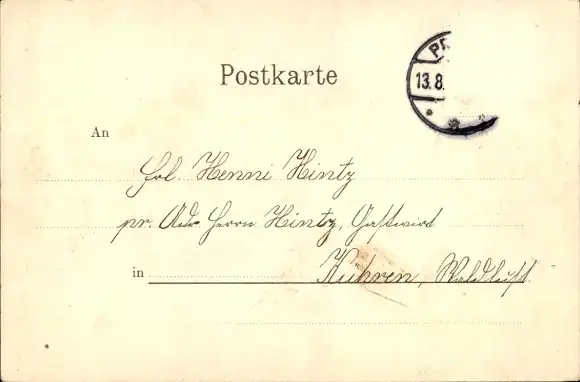 Postkarte
PR
13.8.
An
Frl. Henni Hintz
pr. Adr. Herrn Hintz, Gastwirt
in Kuhren, Waldlust.